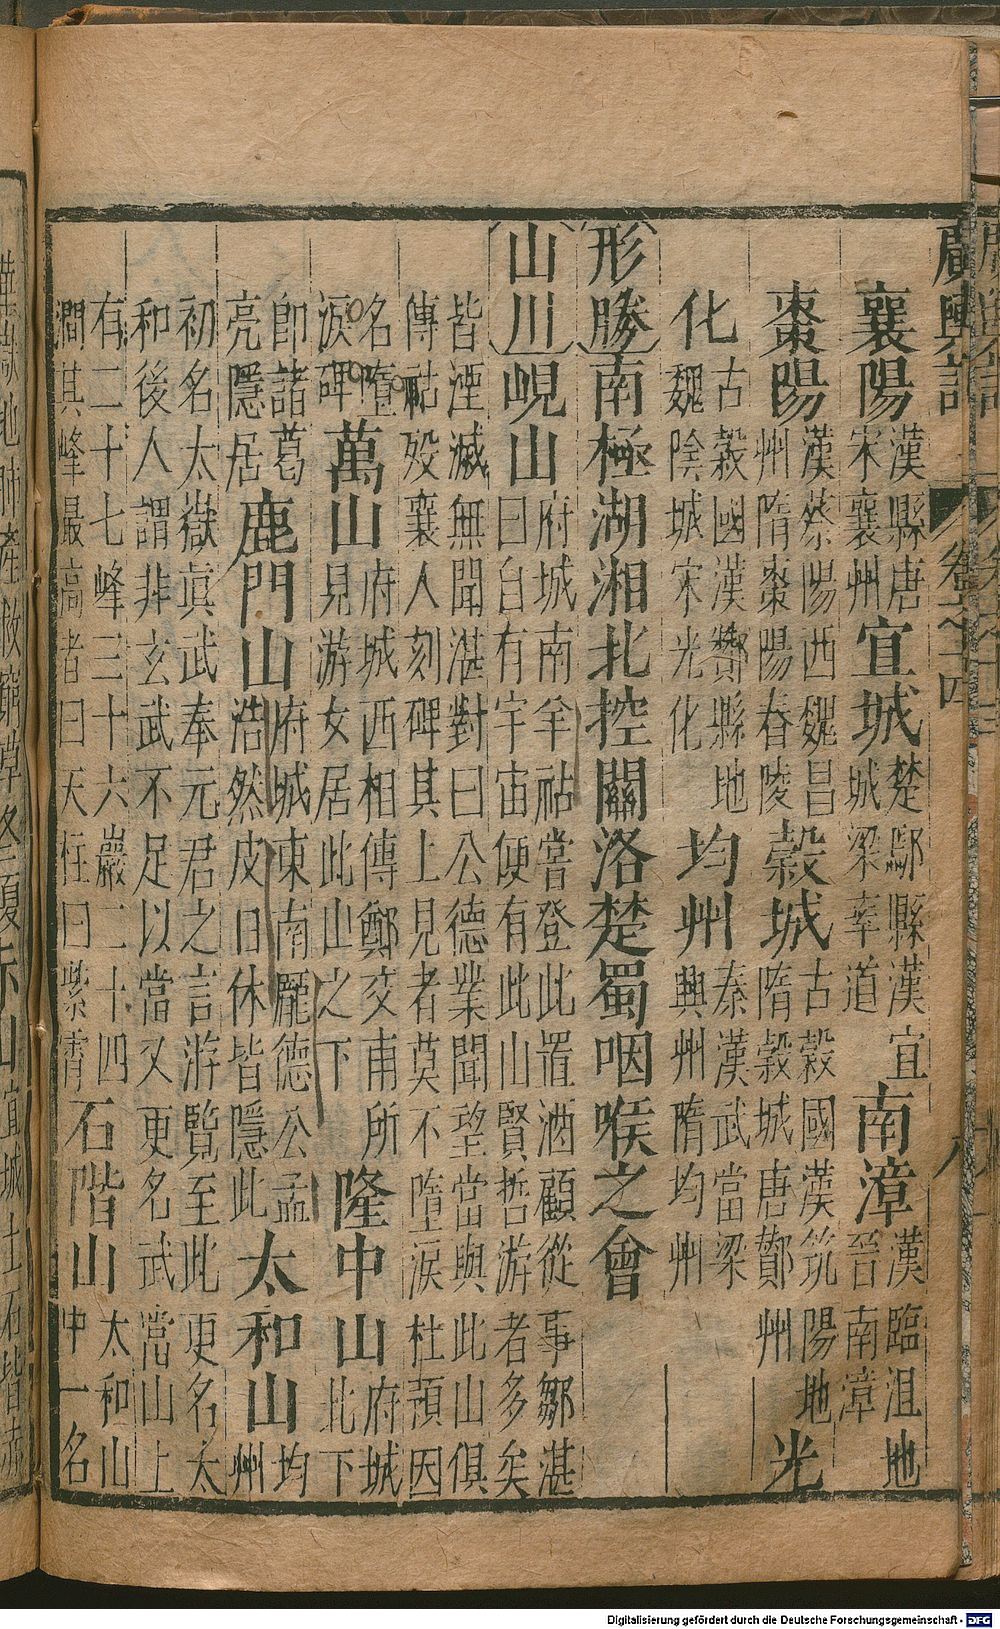 廣輿記 卷之十四 八
襄陽 漢縣唐宋襄州 宜城 楚鄢縣漢宜城梁率道 南漳 漢臨沮地晉南漳
棗陽 漢蔡陽西魏昌州隋棗陽春陵 穀城 古穀國漢筑陽地隋穀城唐酇州 光
化 古穀國漢酇縣地魏陰城宋光化 均州 秦漢武當梁興州隋均州
形勝 南極湖湘北控關洛楚蜀咽喉之會
山川 峴山 府城南羊祜嘗登此置酒顧從事鄒湛曰自有宇宙便有此山賢哲游者多矣
皆湮滅無聞湛對曰公德業聞望當與此山俱傳祜歿襄人刻碑其上見者莫不墮淚杜預因
名墮淚碑 萬山 府城西相傳鄭交甫所見游女居此山之下 隆中山 府城北下
即諸葛亮隱居 鹿門山 府城東南龐德公孟浩然皮日休皆隱此 太和山 均州
初名太嶽眞武奉元君之言游覽至此更名太和後人謂非玄武不足以當又更名武當山上
有二十七峰三十六巖二十四澗其峰最高者曰天柱曰紫霄 石階山 太和山中一名
Digitalisierung gefördert durch die Deutsche Forschungsgemeinschaft - DFG